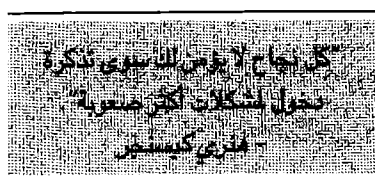 "كل نجاح لا يؤمن لك سوى تذكرة
دخول لمشكلات أكثر صعوبة"
- هنري كيسنجر